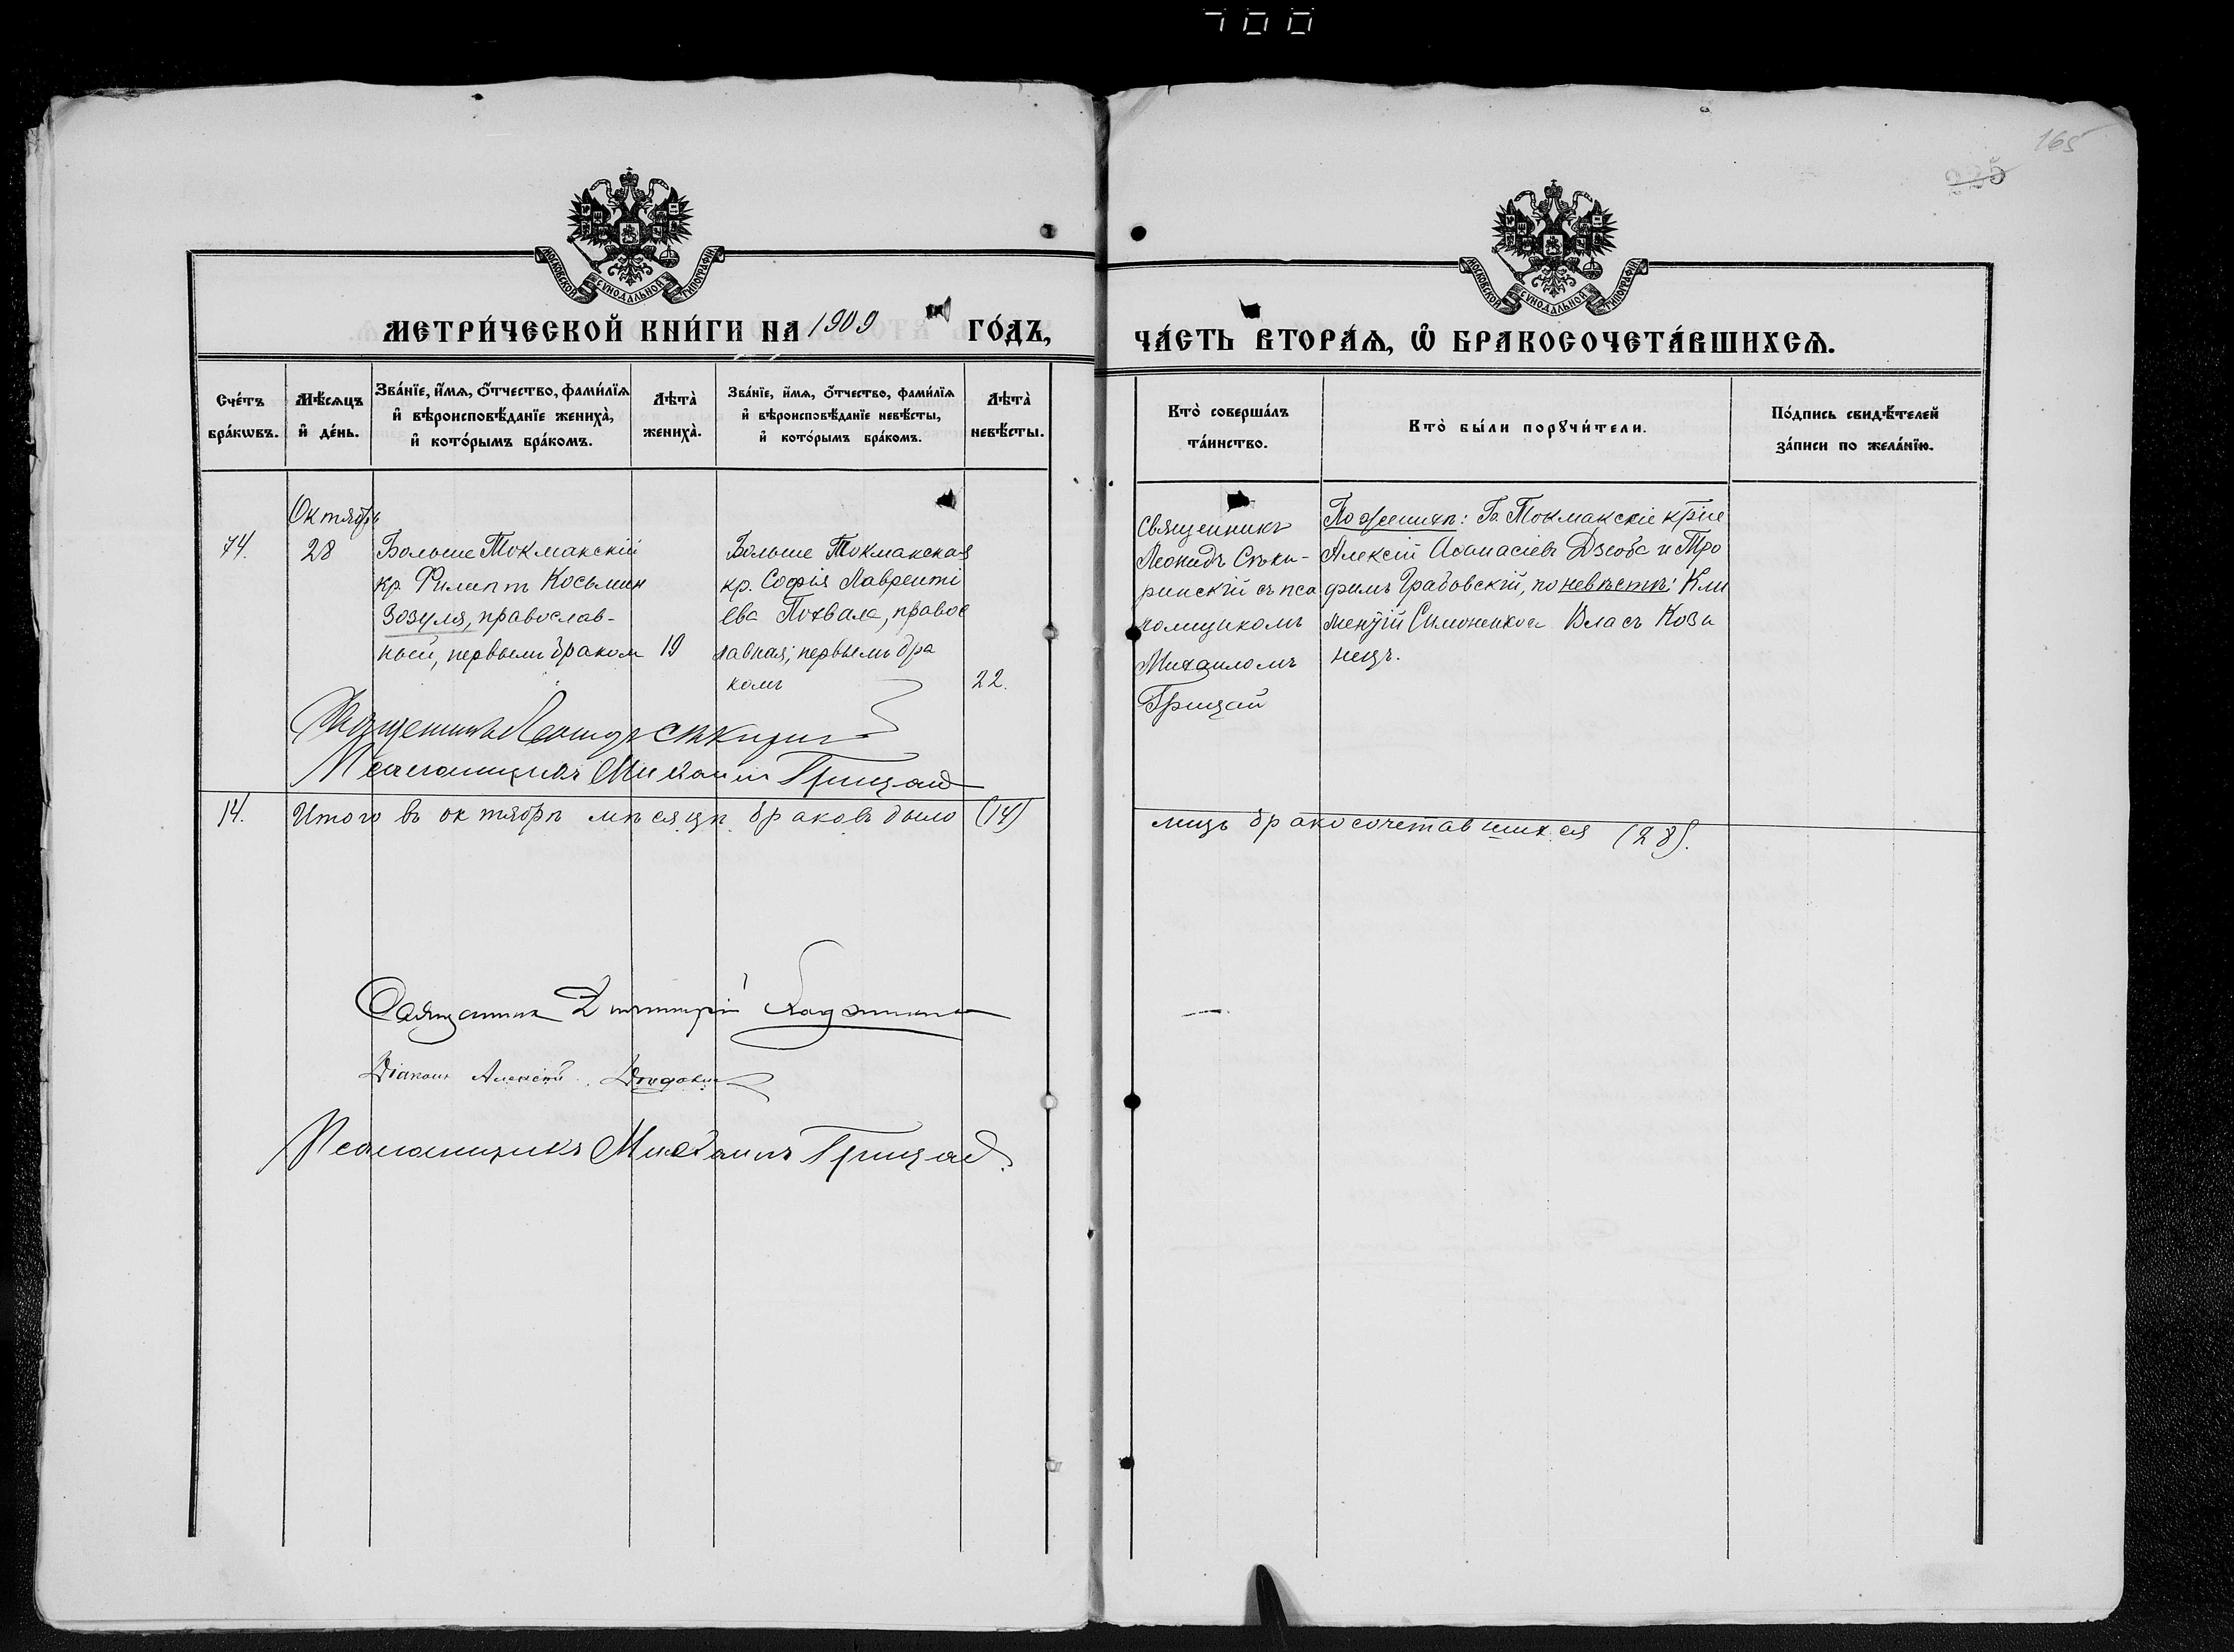 700
165
225
МОСКОВСКОЙ СѴНОДАЛЬНОЙ ТИПОГРАФІИ
МОСКОВСКОЙ СѴНОДАЛЬНОЙ ТИПОГРАФІИ
МЕТРИ́ЧЕСКОЙ КНИ́ГИ НА 1909 ГО́ДЪ,
ЧА́СТЬ ВТОРА́Ѧ, Ѡ҆ БРАКОСОЧЕТА́ВШИХСѦ.
Сче́тъ
бра́кѡвъ.
Мѣ́сѧцъ
и҆ де́нь.
Зва́нїе, и҆́мѧ, о҆́тчество, фами́лїѧ
и҆ вѣроисповѣ́данїе жениха̀,
и҆ кото́рымъ бра́комъ.
Лѣта̀
жениха̀.
Зва́нїе, и҆́мѧ, о҆́тчество, фами́лїѧ
и҆ вѣроисповѣ́данїе невѣ́сты,
и҆ кото́рымъ бра́комъ.
Лѣта̀
невѣ́сты.
Кто̀ соверша́лъ
та́инство.
Кто̀ бы́ли порꙋчи́тели.
По́дпись свидѣ́телей
за́писи по жела́нїю.
Октябрь
74.
28
Больше Токмакскій
кр. Филиппъ Косьмин
Зозуля, православ-
ный, первымъ браком
19
Больше Токмакская
кр. Софія Лавренті
ева Похвала, правос
лавная, первымъ бра
комъ
22.
Священникъ
Леонидъ Сѣки-
ринскій съ пса
ломщикомъ
Михаиломъ
Грицай
По женихѣ: Б. Токмакскіе кр̃не
Алексій Аѳанасіевъ Дзюба и Тро
фимъ Грабовскій, по невѣстѣ: Кли
ментій Симоненко и Власъ Кози
нецъ.
Священникъ Леонидъ Сѣкирин
Псаломщикъ Михаилъ Грицай
14.
Итого въ октябрѣ мѣсяцѣ браковъ было (14)
лицъ бракосочетавшихся (28).
Священник Димитрій
Діаконъ Алексій
Псаломщикъ Михаилъ Грицай.